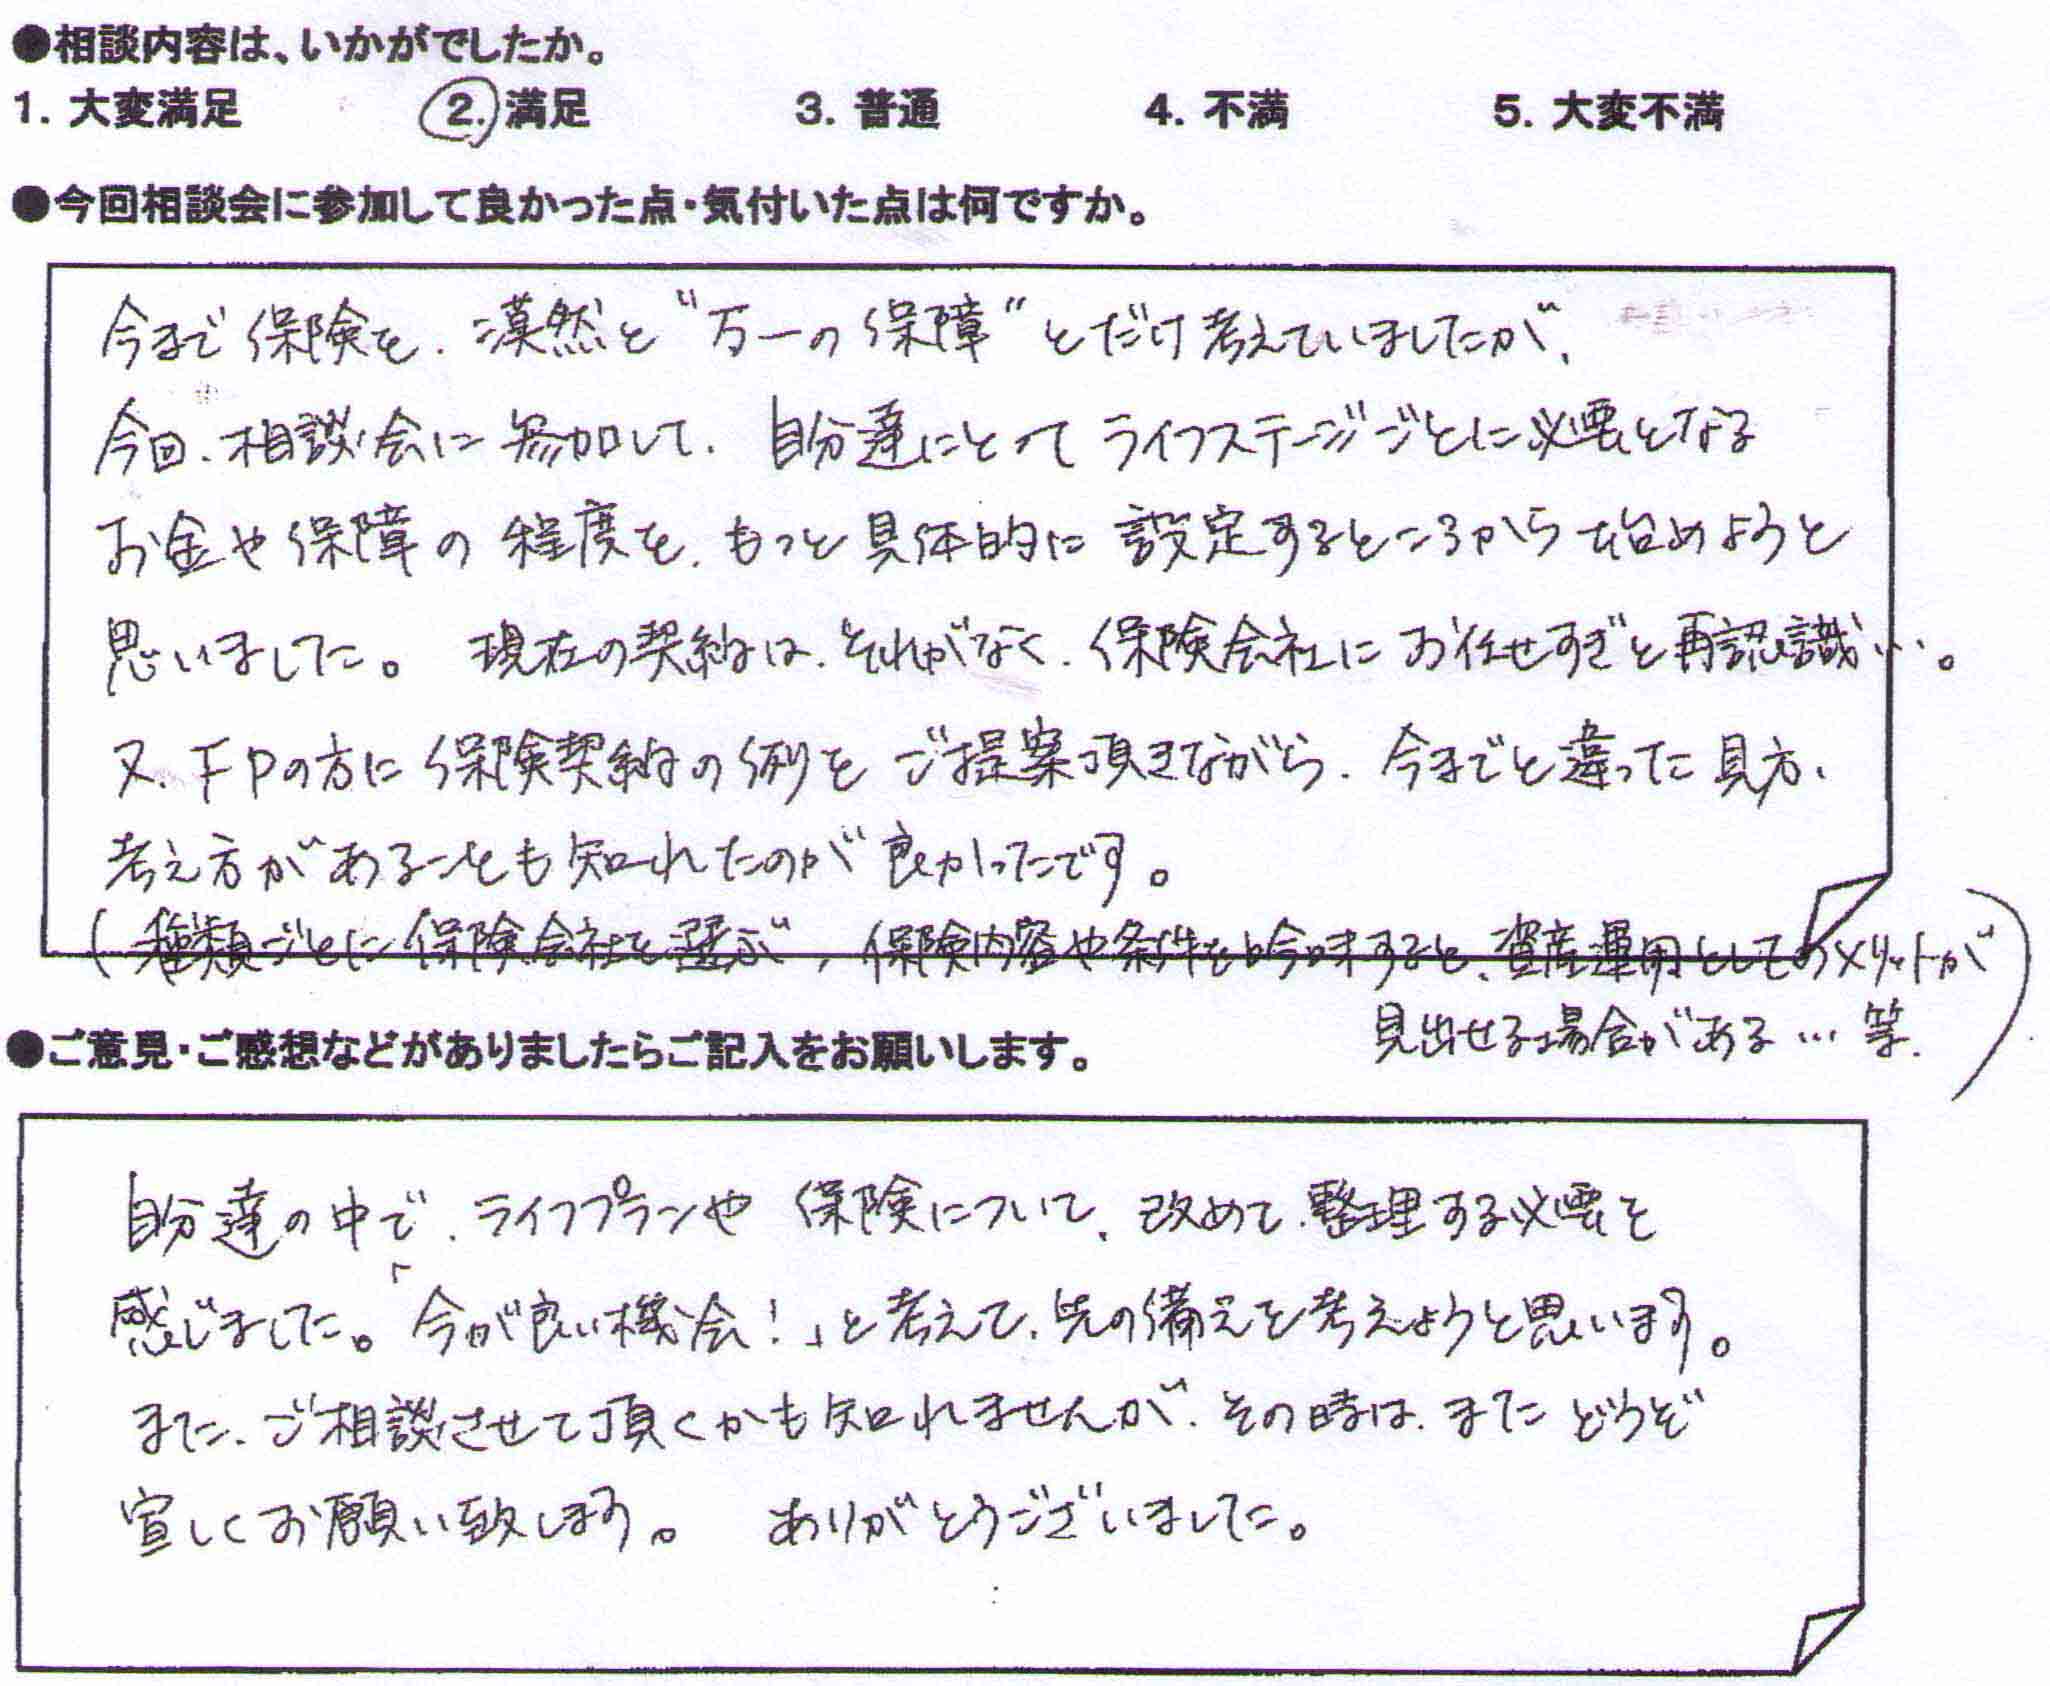 ●相談内容は、いかがでしたか。
1. 大変満足 2. 満足 3. 普通 4. 不満 5. 大変不満
●今回相談会に参加して良かった点・気付いた点は何ですか。
今まで保険を、漠然と"万一の保障"とだけ考えていましたが、
今回、相談会に参加して、自分達にとってライフステージごとに必要となる
お金や保障の程度を、もっと具体的に設定するところから始めようと
思いました。現在の契約は、それがなく、保険会社にお任せすぎと再認識…。
又、FPの方に保険契約の例をご提案頂きながら、今までと違った見方、
考え方があることも知れたのが良かったです。
(種類ごとに保険会社を選ぶ、保険内容や条件を吟味すると、資産運用としてのメリットが
見出せる場合がある…等)
●ご意見・ご感想などがありましたらご記入をお願いします。
自分達の中で、ライフプランや保険について、改めて整理する必要を
感じました。「今が良い機会!」と考えて、先の備えを考えようと思います。
また、ご相談させて頂くかも知れませんが、その時は、またどうぞ
宜しくお願い致します。ありがとうございました。